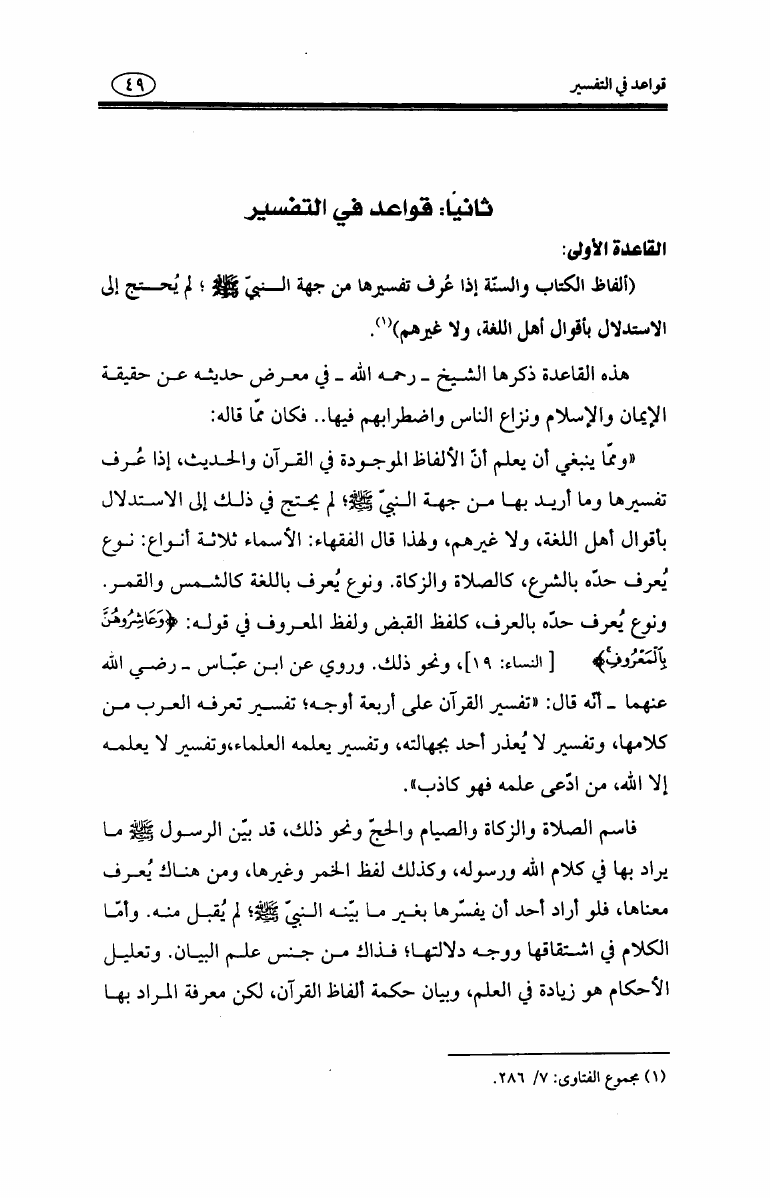 قواعد في التفسير
٤٩
ثانيًا: قواعد في التفسير
القاعدة الأولى:
(ألفاظ الكتاب والسنّة إذا عُرف تفسيرها من جهة النبيّ ﷺ ؛ لم يُحتج إلى
الاستدلال بأقوال أهل اللغة، ولا غيرهم)(١).
هذه القاعدة ذكرها الشيخ - رحمه الله - في معرض حديثه عن حقيقة
الإيمان والإسلام ونزاع الناس واضطرابهم فيها.. فكان ممّا قاله:
«وممّا ينبغي أن يعلم أنّ الألفاظ الموجودة في القرآن والحديث، إذا عُرف
تفسيرها وما أريد بها من جهة النبيّ ﷺ؛ لم يحتج في ذلك إلى الاستدلال
بأقوال أهل اللغة، ولا غيرهم، ولهذا قال الفقهاء: الأسماء ثلاثة أنواع: نوع
يُعرف حدّه بالشرع، كالصلاة والزكاة. ونوع يُعرف باللغة كالشمس والقمر.
ونوع يُعرف حدّه بالعرف، كلفظ القبض ولفظ المعروف في قوله: ﴿وَعَاشِرُوهُنَّ
بِالْمَعْرُوفِ﴾ [النساء: ١٩]، ونحو ذلك. وروي عن ابن عبّاس - رضي الله
عنهما - أنّه قال: «تفسير القرآن على أربعة أوجه؛ تفسير تعرفه العرب من
كلامها، وتفسير لا يُعذر أحد بجهالته، وتفسير يعلمه العلماء،وتفسير لا يعلمه
إلا الله، من ادّعى علمه فهو كاذب».
فاسم الصلاة والزكاة والصيام والحجّ ونحو ذلك، قد بيّن الرسول ﷺ ما
يراد بها في كلام الله ورسوله، وكذلك لفظ الخمر وغيرها، ومن هناك يُعرف
معناها، فلو أراد أحد أن يفسّرها بغير ما بيّنه النبيّ ﷺ؛ لم يُقبل منه. وأمّا
الكلام في اشتقاقها ووجه دلالتها؛ فذاك من جنس علم البيان. وتعليل
الأحكام هو زيادة في العلم، وبيان حكمة ألفاظ القرآن، لكن معرفة المراد بها
(١) مجموع الفتاوى: ٧/ ٢٨٦.